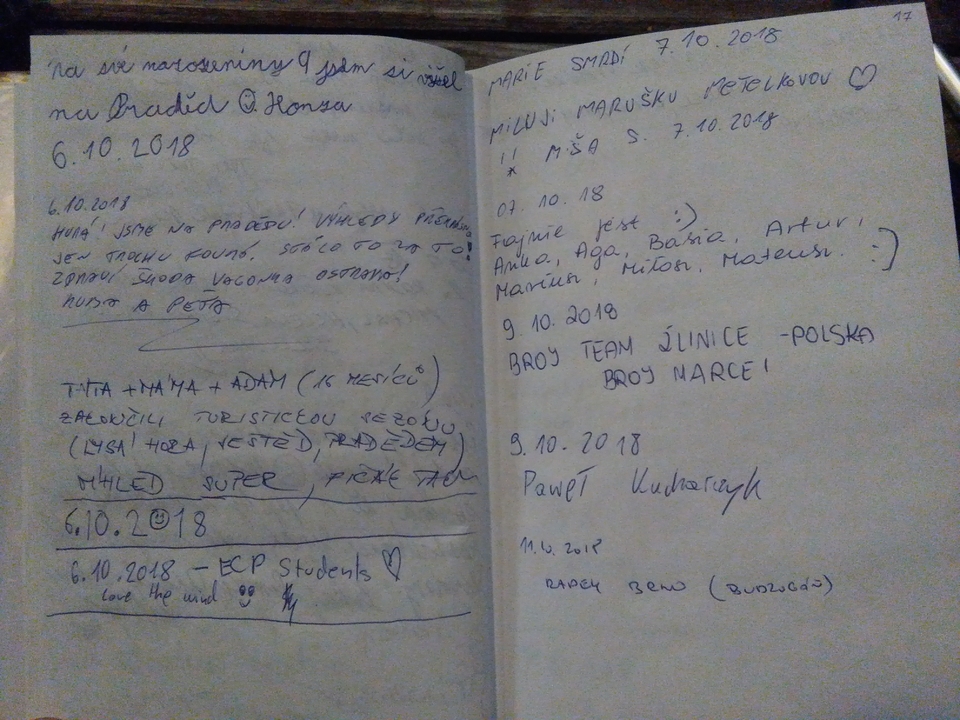 na své narozeniny 9 jsem si vyšel
na Praděd Honza
6.10.2018
6.10.2018
HURÁ! JSME NA PRADĚDU! VÝHLEDY
JEN TROCHU FOUKÁ, STÁLO TO ZA TO!
ZDRAVÍ ŠKODA VAGONKA OSTRAVA!
KUBA A PEŤA
TÁTA + MÁMA + ADAM (16 MĚSÍCŮ)
ZAKONČILI TURISTICKOU SEZÓNU
(LYSÁ HORA, JEŠTĚD, PRADĚDEM)
VÝHLED SUPER,
6.10.2018
6.10.2018 – ECP Students ♡
love the wind
17
MARIE SMRDÍ 7.10.2018
MILUJI MARUŠKU METELKOVOU ♡
!! MÍŠA S. 7.10.2018
07.10.18
Fajnie jest :)
Anka, Aga, Basia, Artur,
Mariusz, Miłosz, Mateusz. :)
9.10.2018
BROY TEAM ŻLINICE -POLSKA
BROY MARCEL
9.10.2018
Paweł Kucharczyk
11.10.2018
RADEK BRNO